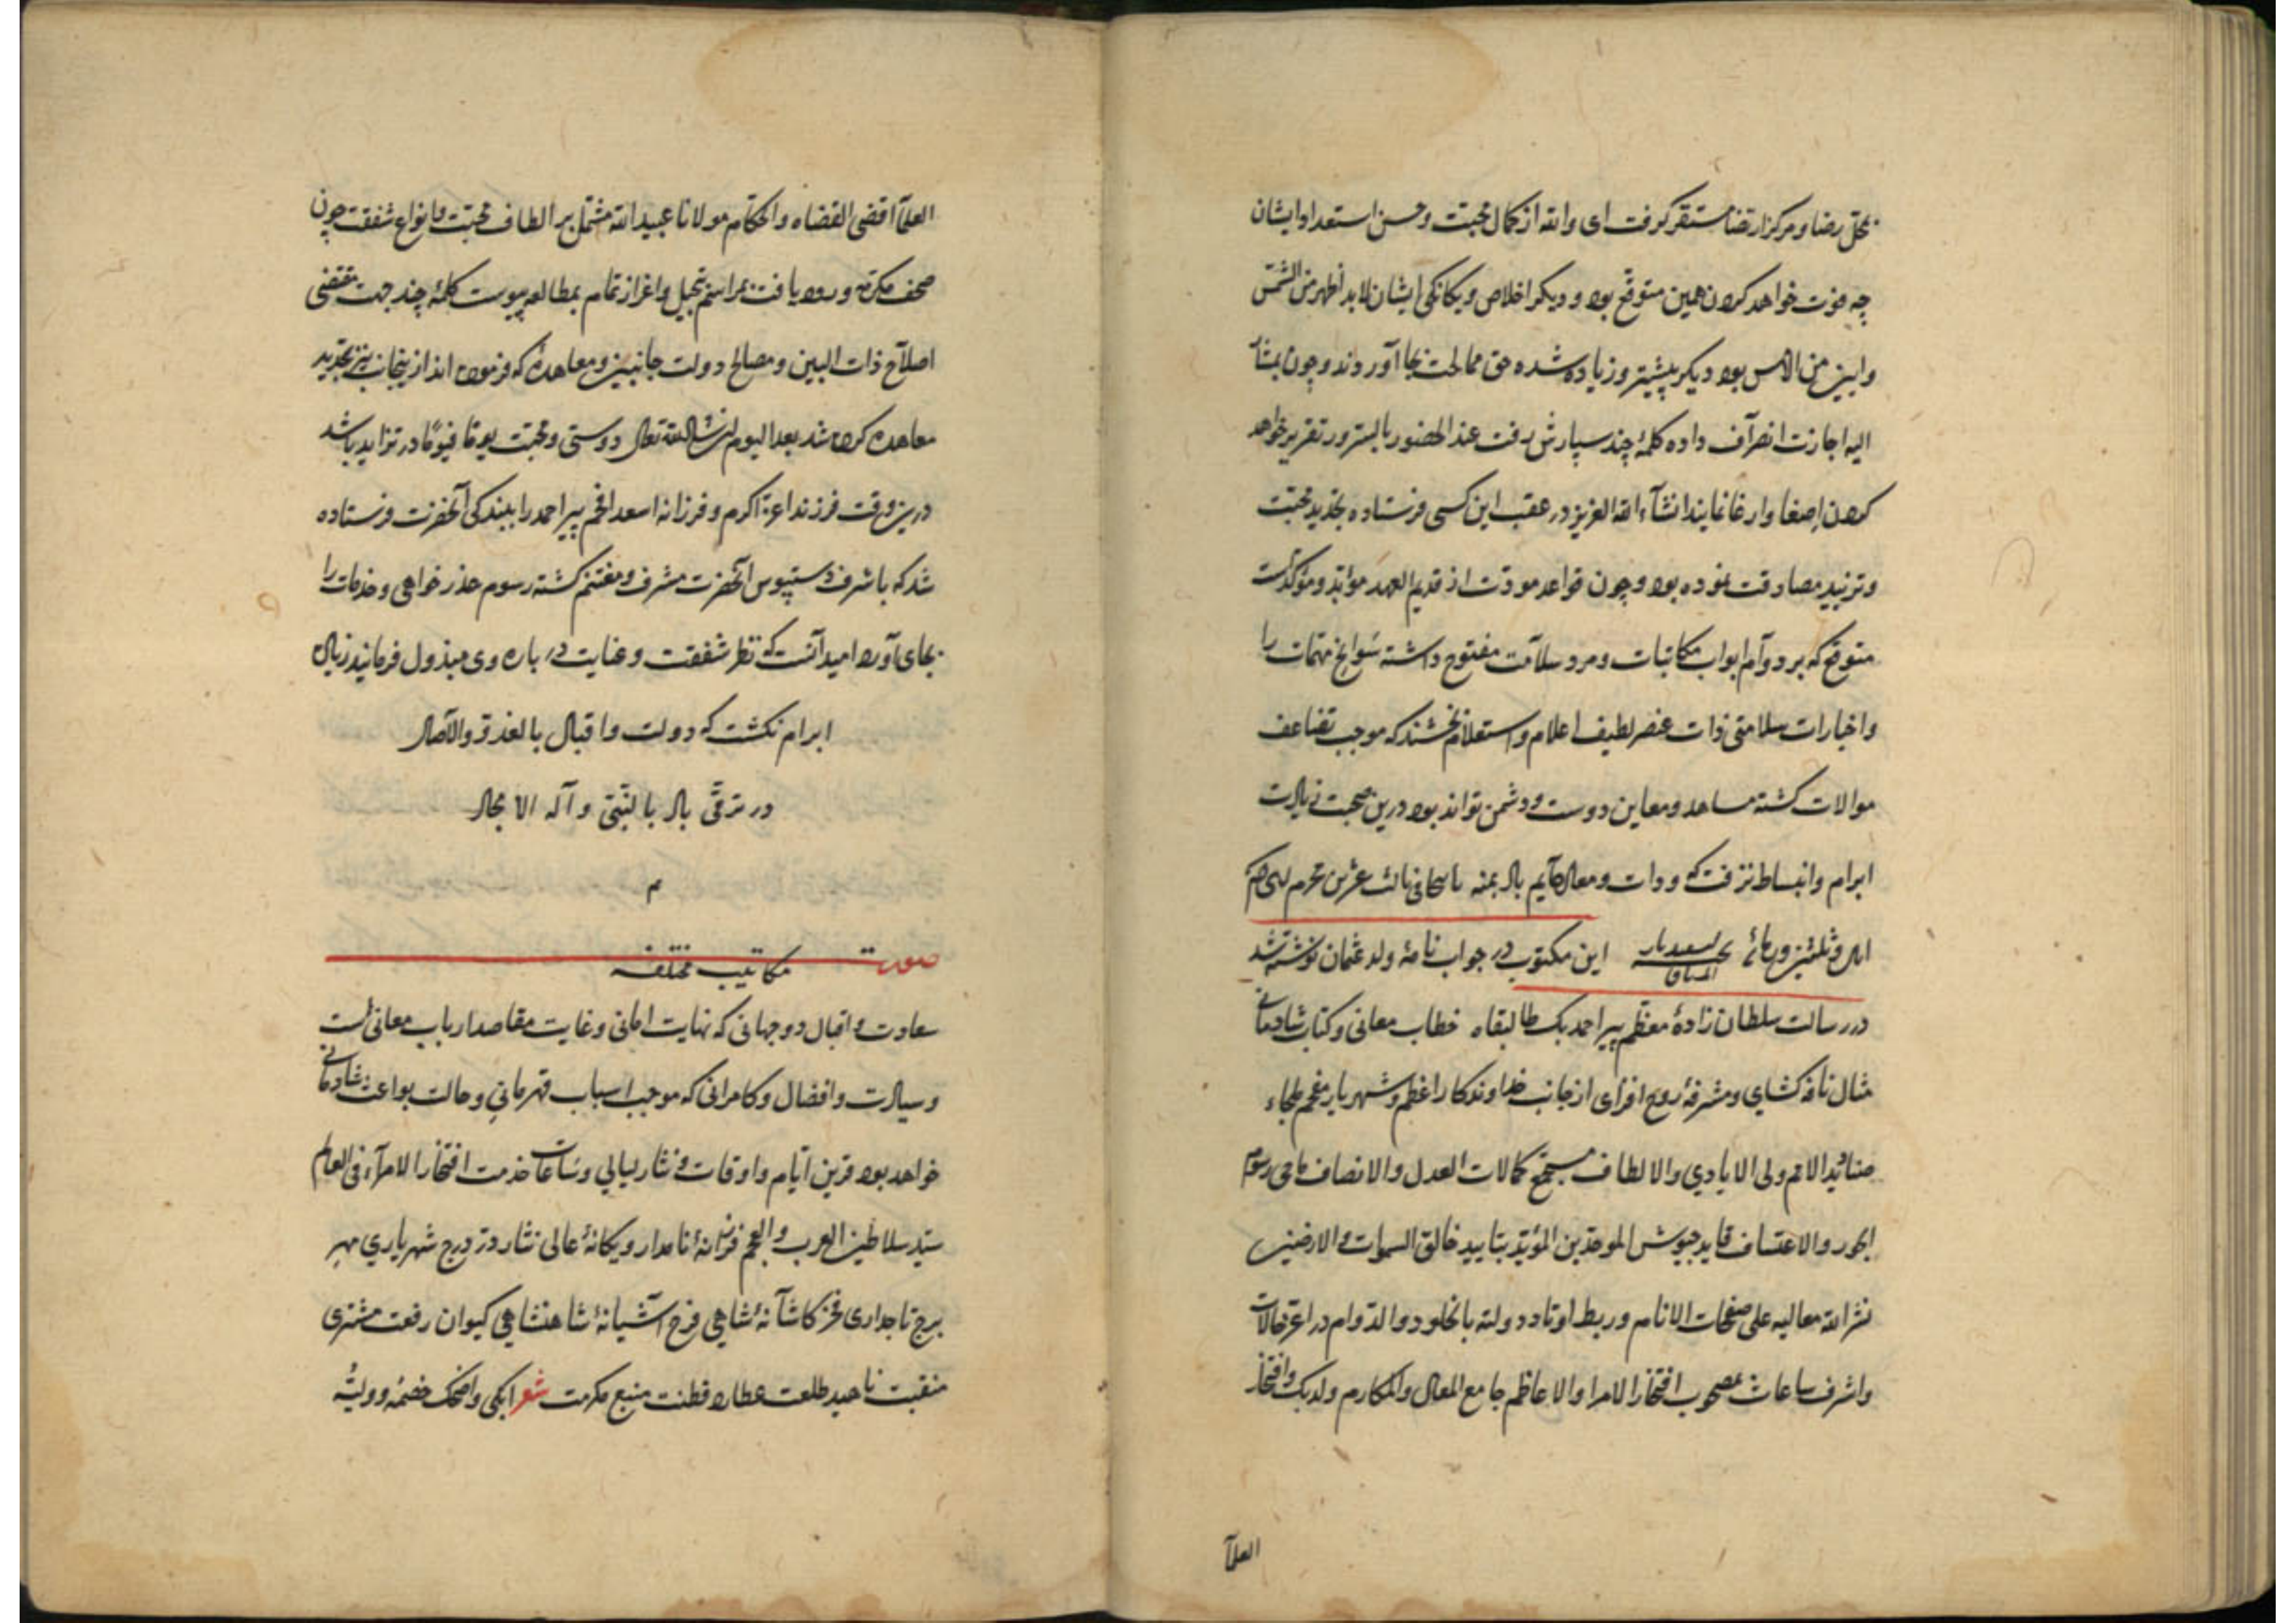 بمحل رضا و مرکز ارتضا مستقر کرفت ای والله از کمال محبت و حسن استعداد ایشان
چه فوت خواهد کردن همین متوقع بود و دیکر اخلاص و یکانکی ایشان لابد اظهر من الشمس
وابین من الامس بود دیکر بیشتر و زیاده شده حق ممالحت بجا آوردند و چون بمشار
الیه اجازت انصرآف داده کلمهٔ چند سپارش رفت عند الحضور بالسر ور تقریر خواهد
کردن اصغا و ارعا نمایند انشآء الله العزیز در عقب این کسی فرستاده بتجدید محبت
و تزیید مصادقت نموده بود و چون قواعد مودت از قدیم العهد مؤبد و مؤکدست
متوقع که بر دوآم ابواب مکاتبات و مراسلات مفتوح داشته سوانح مهمات را
و اخبارات سلامتی ذات عنصر لطیف اعلام و استعلام بخشند که موجب تضاعف
موالات کشته مساعد و معاین دوست و دشمن تواند بود درین صحبت زیادت
ابرام و انبساط نرفت که و دات و معالی دآیم باد بمنه ثالث عشرین محرم
این مکتوب در جواب نامهٔ ولد عثمان نوشته شد
در رسالت سلطان زادهٔ معظم پیر احمد بک طال بقاه خطاب معانی و کتاب شادمانی
مثال نافه کشای و مشرفهٔ روح افزای از جانب خداوندکار اعظم و شهریار مفخم ملجاء
صنادید الامم ولی الایادی والالطاف مستجمع کمالات العدل والانصاف ماحی رسوم
الجور والاعتساف قاید جیوش الموحدین المؤید بتایید خالق السموات والارضین
نشر الله معالیه علی صفحات الانام و ربط اوتاد دولته بالخلود والدوام در اعز حالات
و اشرف ساعات مصحوب افتخار الامرا والاعاظم جامع المعالی والمکارم ولد بک وافتخار
العلمآ
العلمآ اقضی القضاه والحکام مولانا عبید الله مشتمل بر الطاف محبت و انواع شفقت چون
صحف مکرمه ورود یافت بمراسم تبجیل و اعزاز تمام بمطالعه پیوست کلمهٔ چند جهت مقتضی
اصلآح ذات البین و مصالح دولت جانبین و معاهده که فرموده اند ازینجانب نیز بتجدید
معاهده کرده شد بعد الیوم ان شاالله تعالی دوستی و محبت یوما فیوما در تزاید باشد
درین وقت فرزند اعز اکرم و فرزانه اسعد افخم پیر احمد را ببندکی آنحضرت فرستاده
شد که باشرف دستبوس آنحضرت مشرف و مغتنم کشته رسوم عذر خواهی و خدمات را
بجای آورد امید آنست که نظر شفقت و عنایت در باره وی مبذول فرمایند زیاده
ابرام نکشت که دولت و اقبال بالغدو والآصال
در ترقی باد بالنبی و آله الامجاد
م
صورت مکاتیب مختلفه
سعادت و اقبال دوجهانی که نهایت امانی و غایت مقاصد ارباب معانی است
و سیادت و افضال و کامرانی که موجب اسباب قهرمانی و حالت بواعث شادمانی
خواهد بود قرین ایام و اوقات و نثار لیالی و ساعات خدمت افتخار الامرآء فی العالم
سید سلاطین العرب والعجم فرزانهٔ نامدار و یکانهٔ عالی نثار در درج شهریاری مهر
برج تاجداری فخر کاشآنهٔ شاهی فرخ آشیانهٔ شاهنشاهی کیوان رفعت مشتری
منقبت ناهید طلعت عطارد فطنت منبع مکرمت شعر ابکی واضحک خصمه وولیه